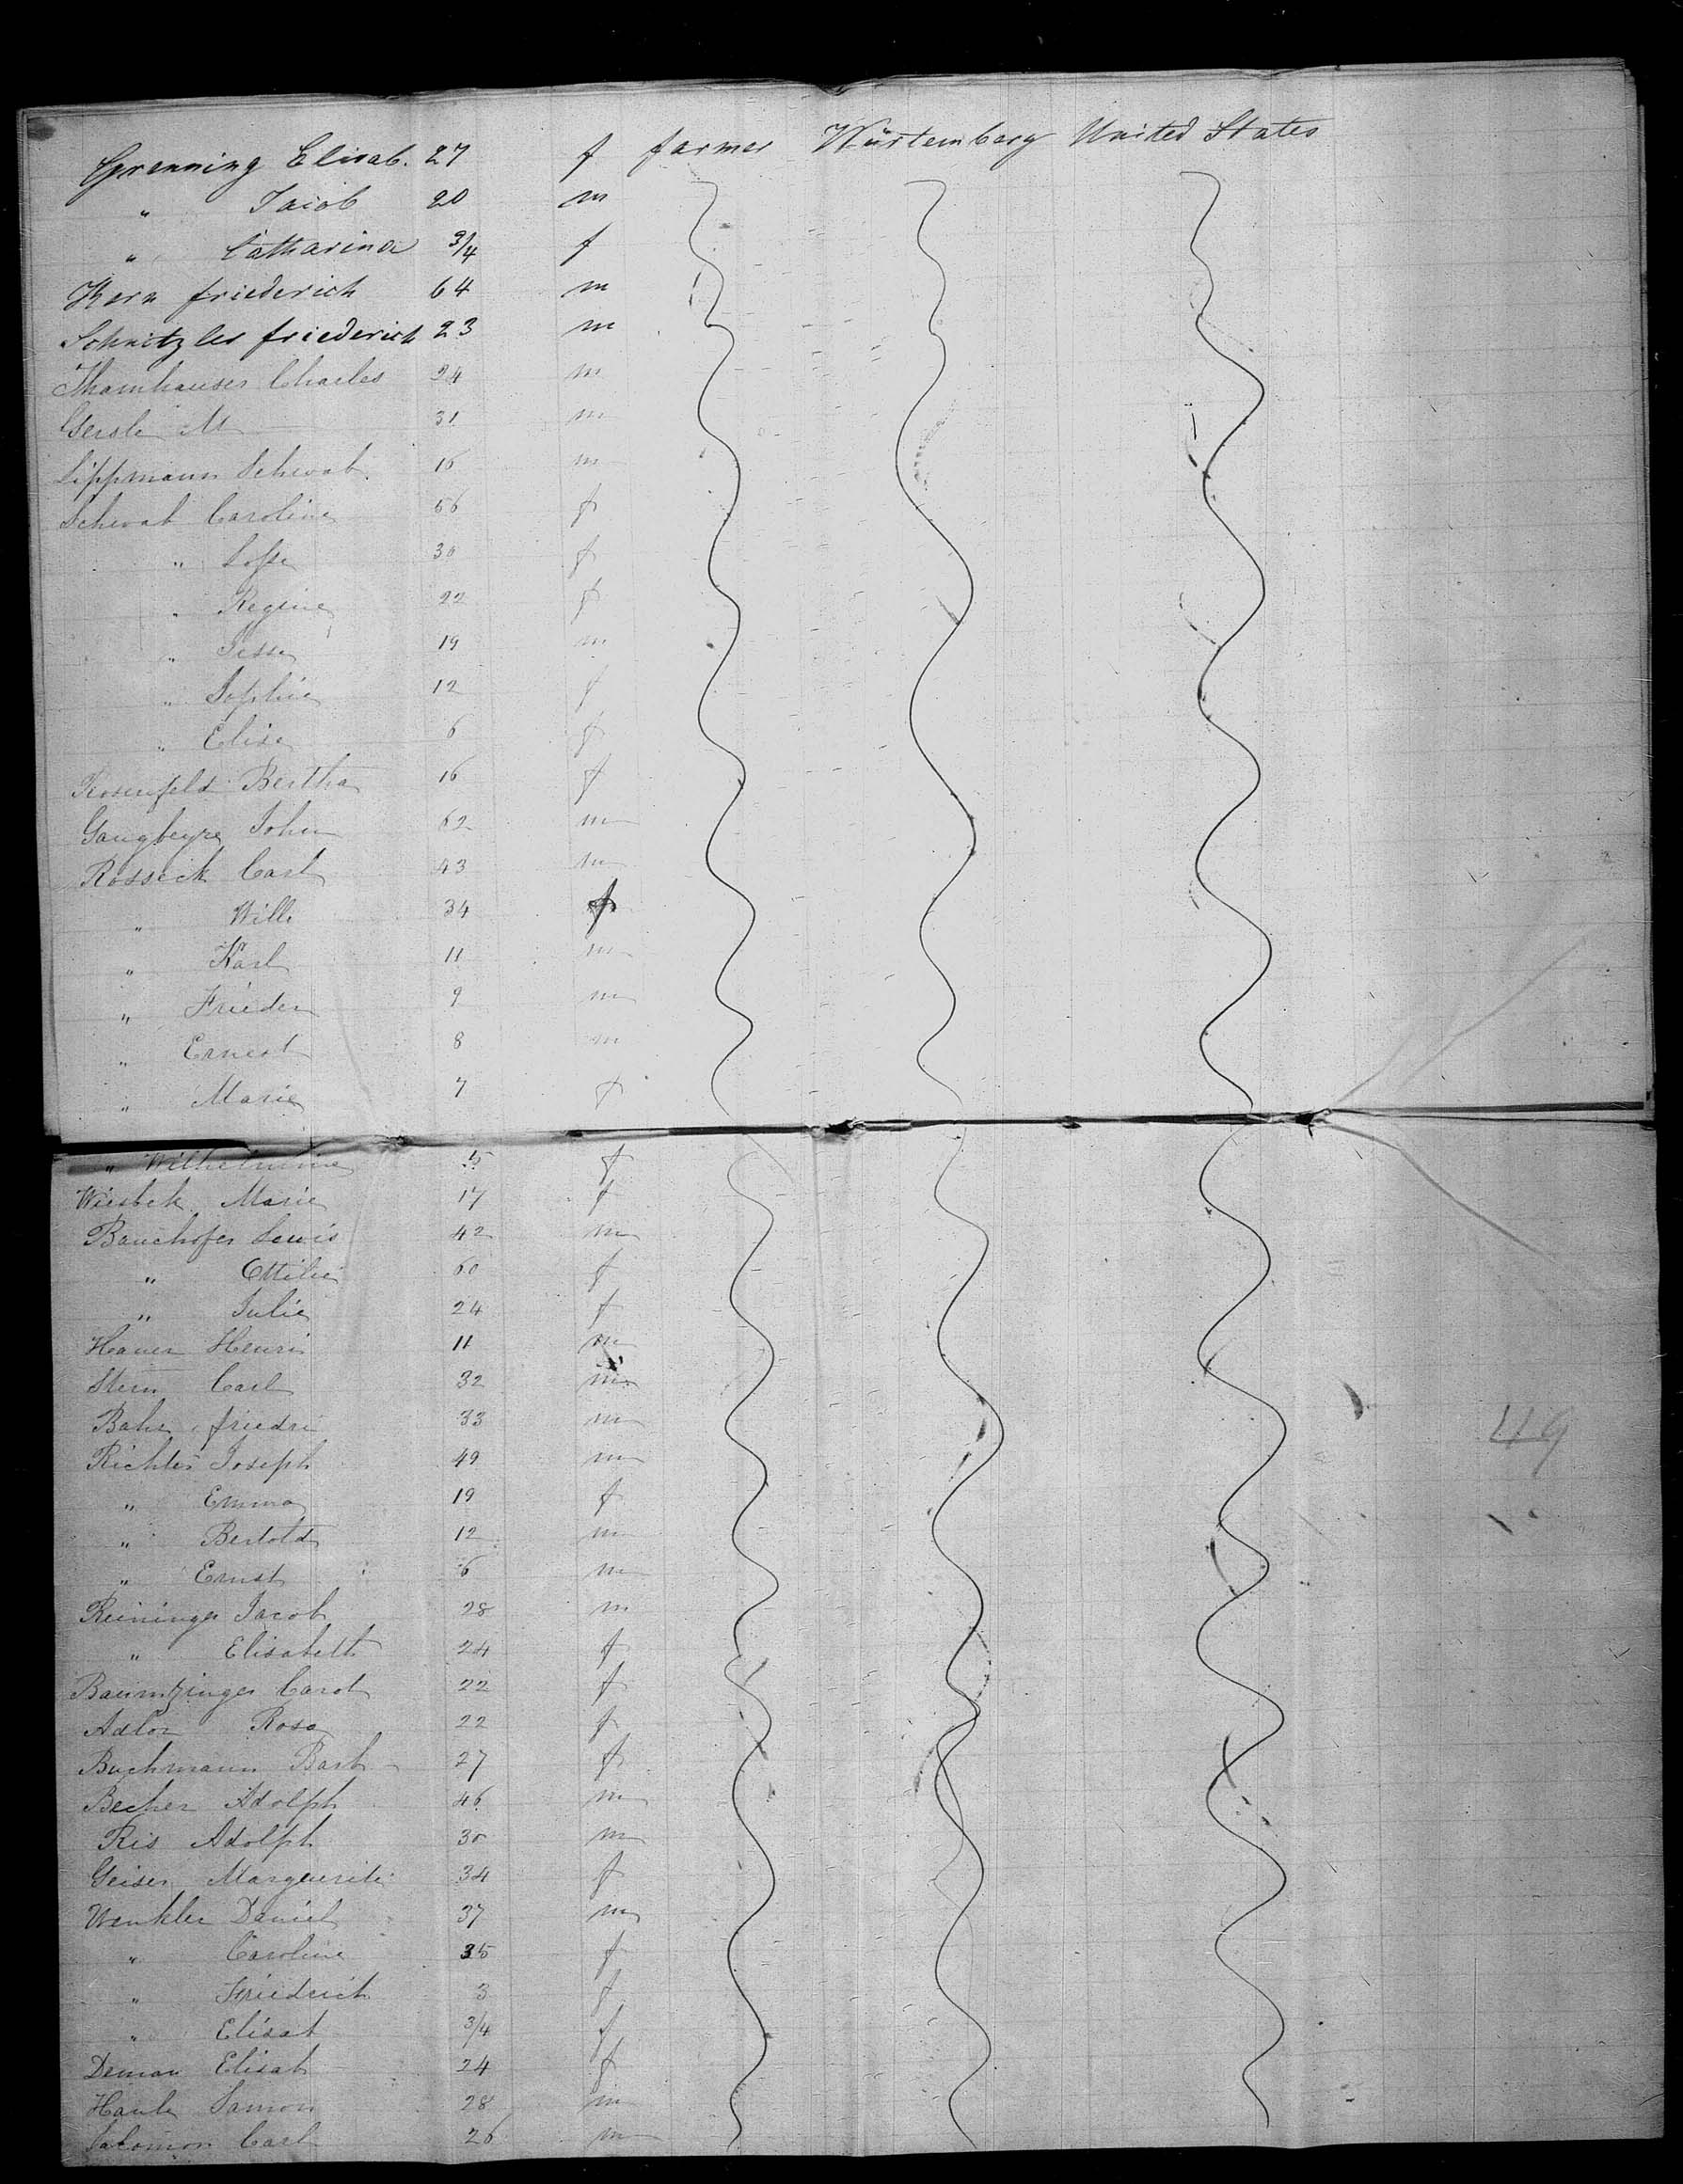 Grenning Elisab. 27 f farmer Würtemberg United States
" Jaiob 20 m
" Catharina 3/4 f
Kern friederich 64 m
Schnitzler friederich 23 m
Thamhauser Charles 24 m
Gerste M 31 m
Lippmann Schwab. 16 m
Schwab Caroline 56 f
" 30 f
" Regine 22 f
" Jesse 19 m
" Sophie 12 f
" Elise 6 f
Rosenfeld Bertha 16 f
John 62 m
Rosseck Carl 43 m
" Wille 34 f
" Karl 11 m
" Frieder 9 m
" Ernest 8 m
" Marie 7 f
" Wilhelmine 5 f
Wiesbek Marie 17 f
Bauchofer Lewis 42 m
" Ottilie 60 f
" Julie 24 f
Hauer Henri 11 m
Stern Carl 32 m
Bahr friedri 33 m
Richter Joseph 49 m
" Emma 19 f
" Bertold 12 m
" Ernst 6 m
Reininger Jacob 28 m
" Elisabeth 24 f
Carol 22 f
Adlor Rosa 22 f
Buchmann Barb 27 f
Becher Adolph 46 m
Ris Adolph 30 m
Geiser Marguerite 34 f
Winkler Daniel 37 m
" Caroline 35 f
" Friedrich 3 f
" Elisab 3/4 f
Deman Elisab 24 f
Haule Samon 28 m
Salomon Carl 26 m
49